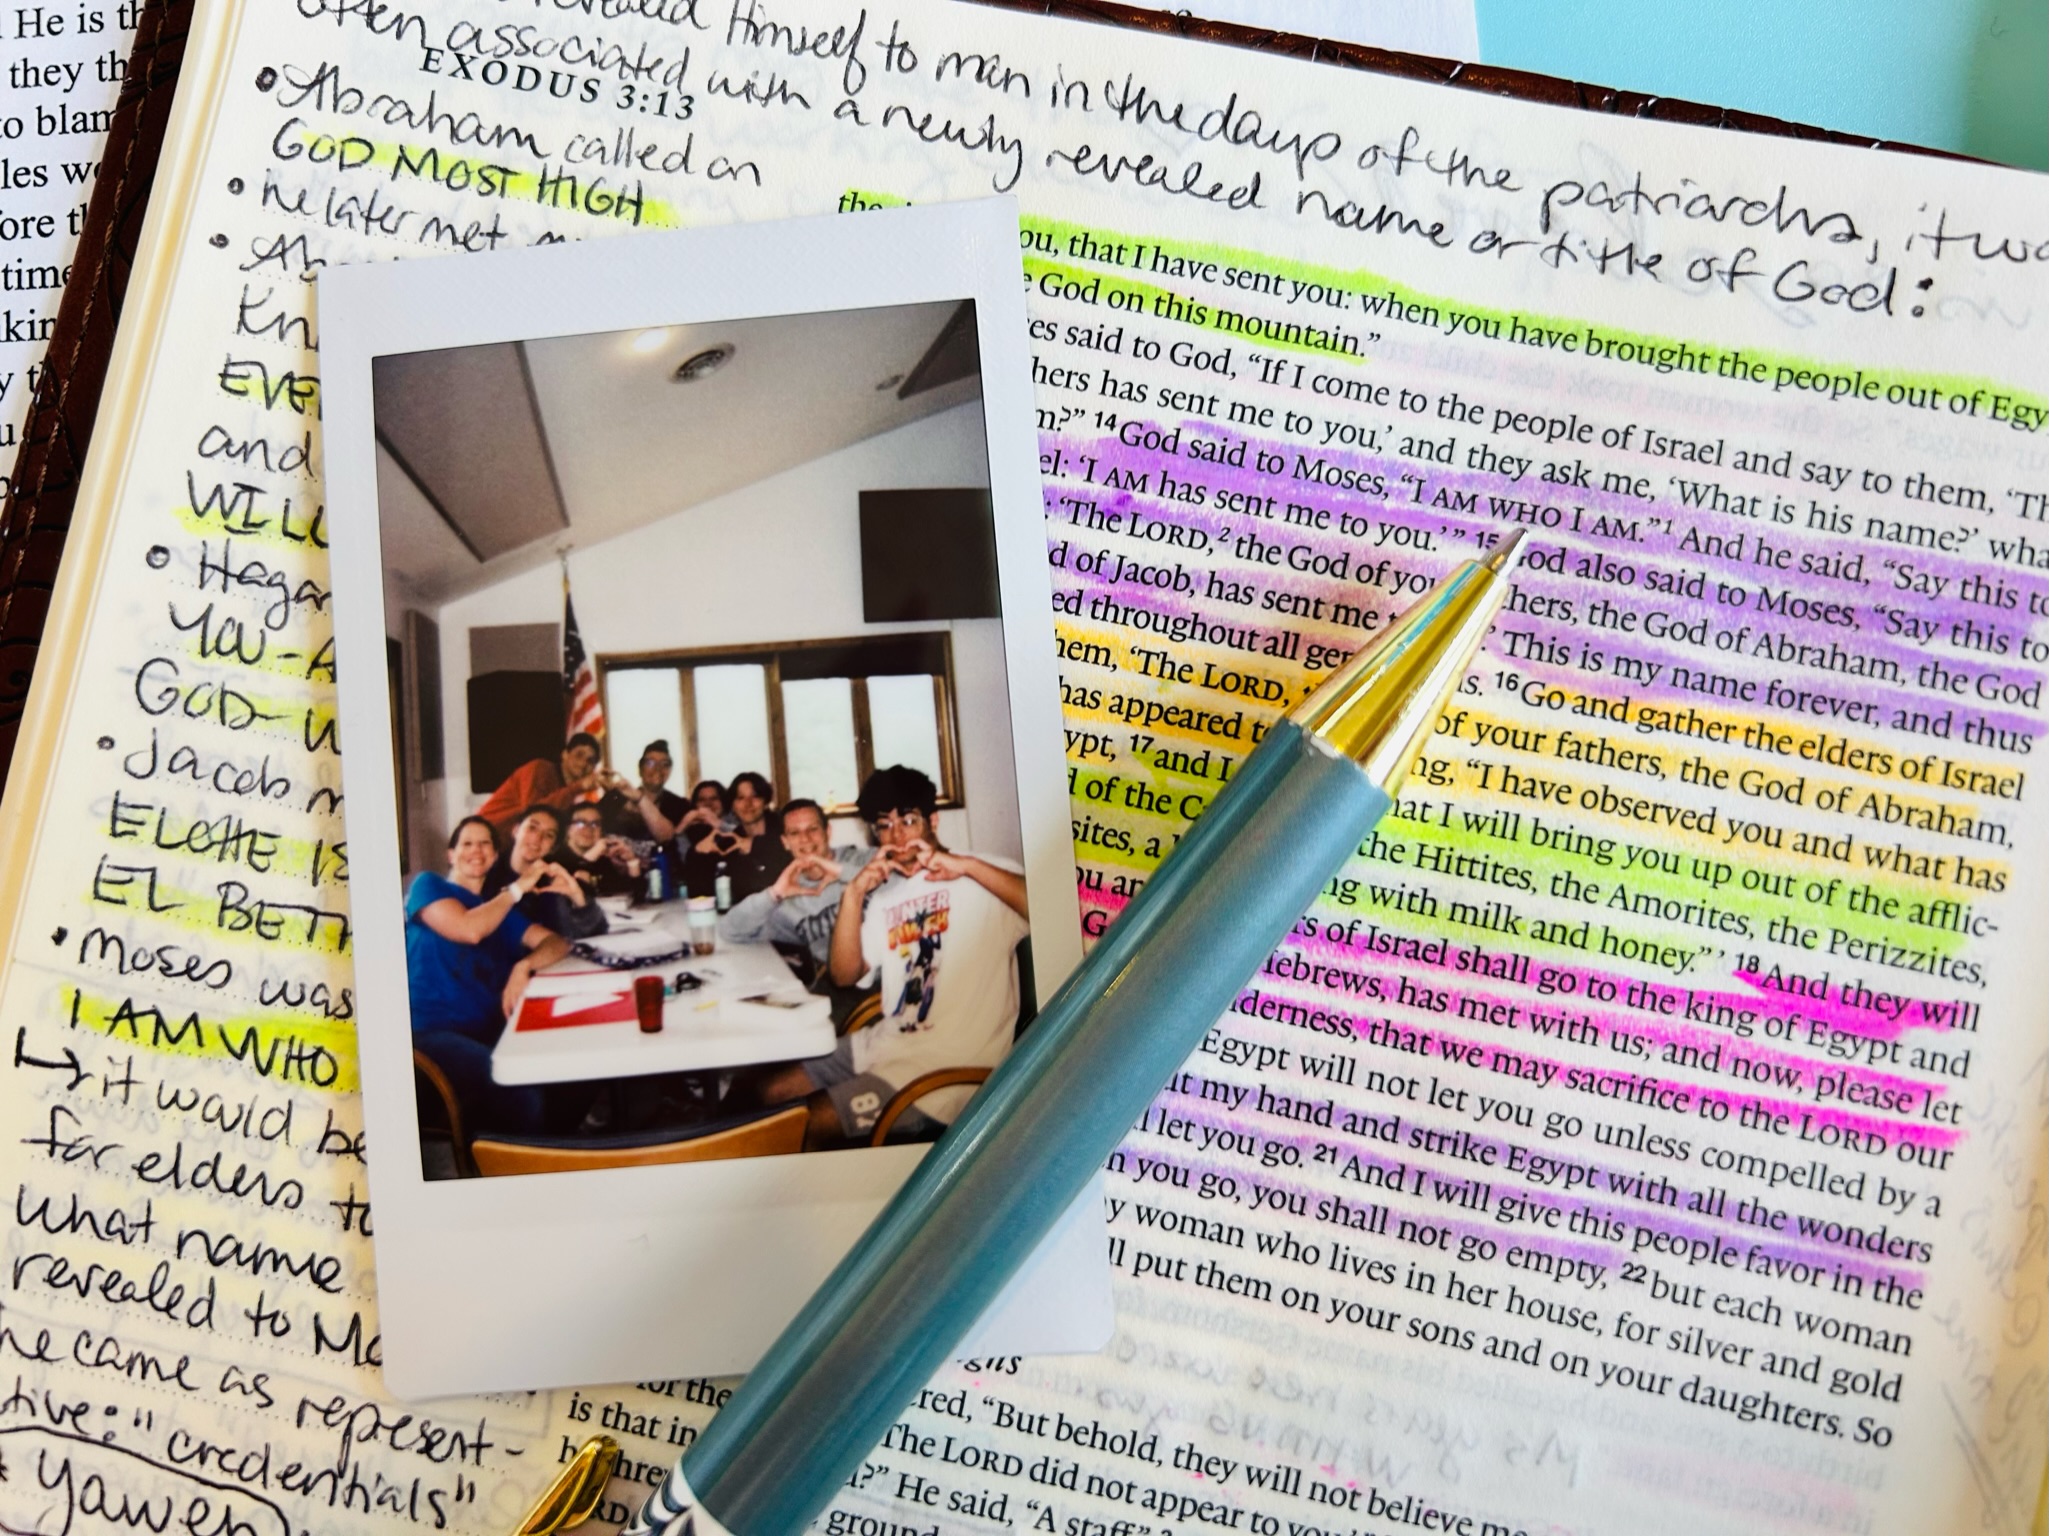 He is th
they th
to blam
les we
fore th
time
kin
y th
revealed Himself to man in the days of the patriarchs, it wa
often associated with a newly revealed name or title of God:
EXODUS 3:13
• Abraham called on
GOD MOST HIGH
• he later met
• Ab
Kn
EVE
and
WILL
• Hagar
YOU-A
GOD-W
• Jacob
ELOHE IS
EL BETH
• Moses was
I AM WHO
↳ it would be
for elders to
what name
revealed to Mo
he came as represent-
tive: "credentials"
* Yaweh
ou, that I have sent you: when you have brought the people out of Egy
e God on this mountain.”
es said to God, “If I come to the people of Israel and say to them, ‘Th
hers has sent me to you,’ and they ask me, ‘What is his name?’ wha
m?” 14 God said to Moses, “I AM WHO I AM.”1 And he said, “Say this to
el: ‘I AM has sent me to you.’” 15 God also said to Moses, “Say this to
: ‘The LORD,2 the God of you thers, the God of Abraham, the God
d of Jacob, has sent me t ’ This is my name forever, and thus
ed throughout all gen s. 16 Go and gather the elders of Israel
hem, ‘The LORD, of your fathers, the God of Abraham,
has appeared to ng, “I have observed you and what has
ypt, 17 and I hat I will bring you up out of the afflic-
d of the C the Hittites, the Amorites, the Perizzites,
sites, a ng with milk and honey.”’ 18 And they will
ou an rs of Israel shall go to the king of Egypt and
G Hebrews, has met with us; and now, please let
lderness, that we may sacrifice to the LORD our
Egypt will not let you go unless compelled by a
ut my hand and strike Egypt with all the wonders
l let you go. 21 And I will give this people favor in the
n you go, you shall not go empty, 22 but each woman
y woman who lives in her house, for silver and gold
ll put them on your sons and on your daughters. So
gns
red, “But behold, they will not believe me
The LORD did not appear to you.’”
d?” He said, “A staff.”
ground
for the
is that in